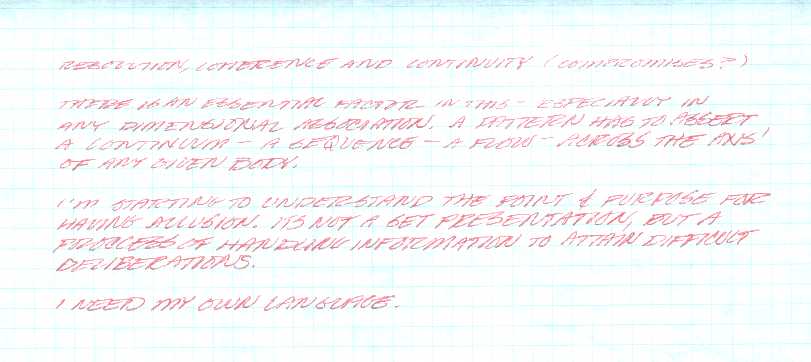 RESOLUTION, COHERENCE AND CONTINUITY (COMPROMISES?)
THERE IS AN ESSENTIAL FACTOR IN THIS - ESPECIALLY IN
ANY DIMENSIONAL ASSOCIATION. A PATTERN HAS TO ASSERT
A CONTINUUM - A SEQUENCE - A FLOW - ACROSS THE AXIS'
OF ANY GIVEN BODY.
I'M STARTING TO UNDERSTAND THE POINT & PURPOSE FOR
HAVING ALLUSION. ITS NOT A SET PRESENTATION, BUT A
PROCESS OF HANDLING INFORMATION TO ATTAIN DIFFICULT
DELIBERATIONS.
I NEED MY OWN LANGUAGE.